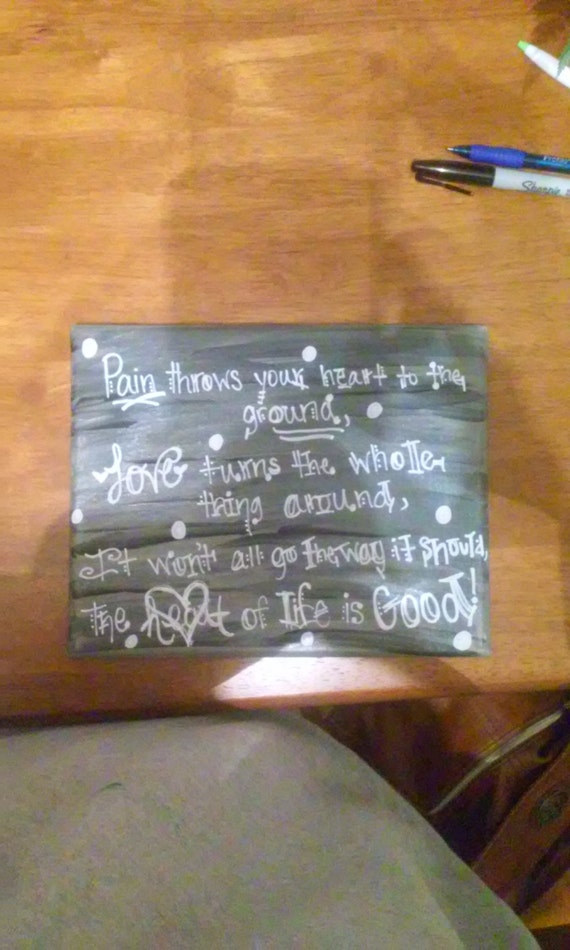 Sharpie
Pain throws your heart to the
ground,
Love turns the whole
thing around,
It won't all go the way it should,
the heart of life is Good!